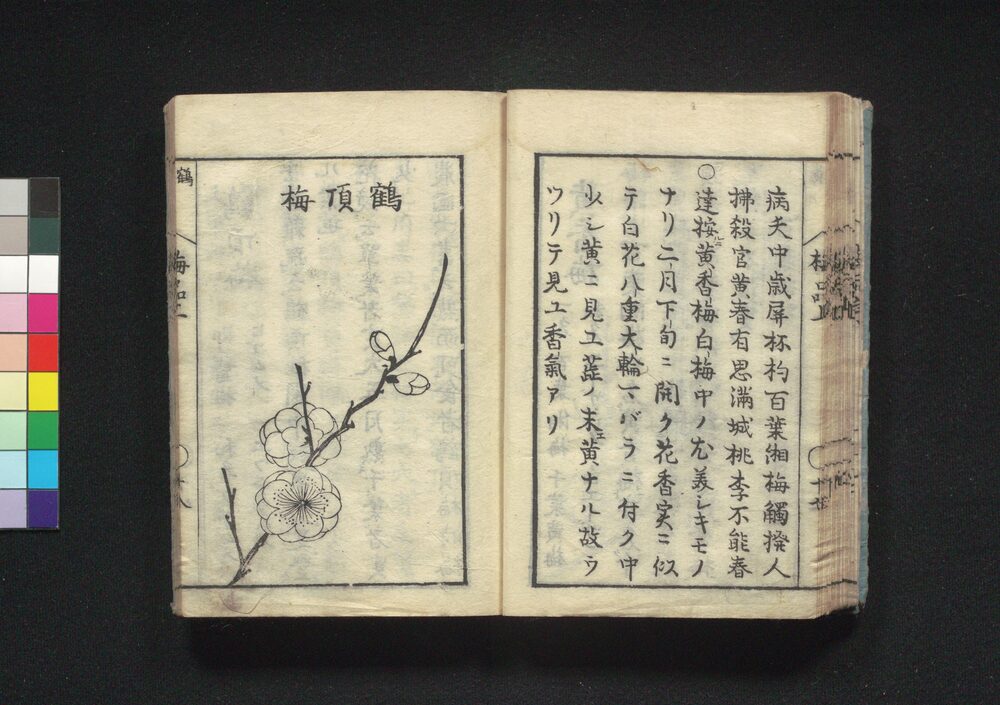 病夫中歳屏杯杓百葉緗梅觸撥人
拂殺官黄春有思滿城桃李不能春
○達按ルニ黄香梅白梅中ノ尤美シキモノ
ナリ二月下旬ニ開ク花香実ニ似
テ白花八重大輪一バラニ付ク中
少シ黄ニ見エ蕋ノ末黄ナル故ウ
ツリテ見エ香氣アリ
梅品上
鶴頂梅
鶴
梅品上
十八